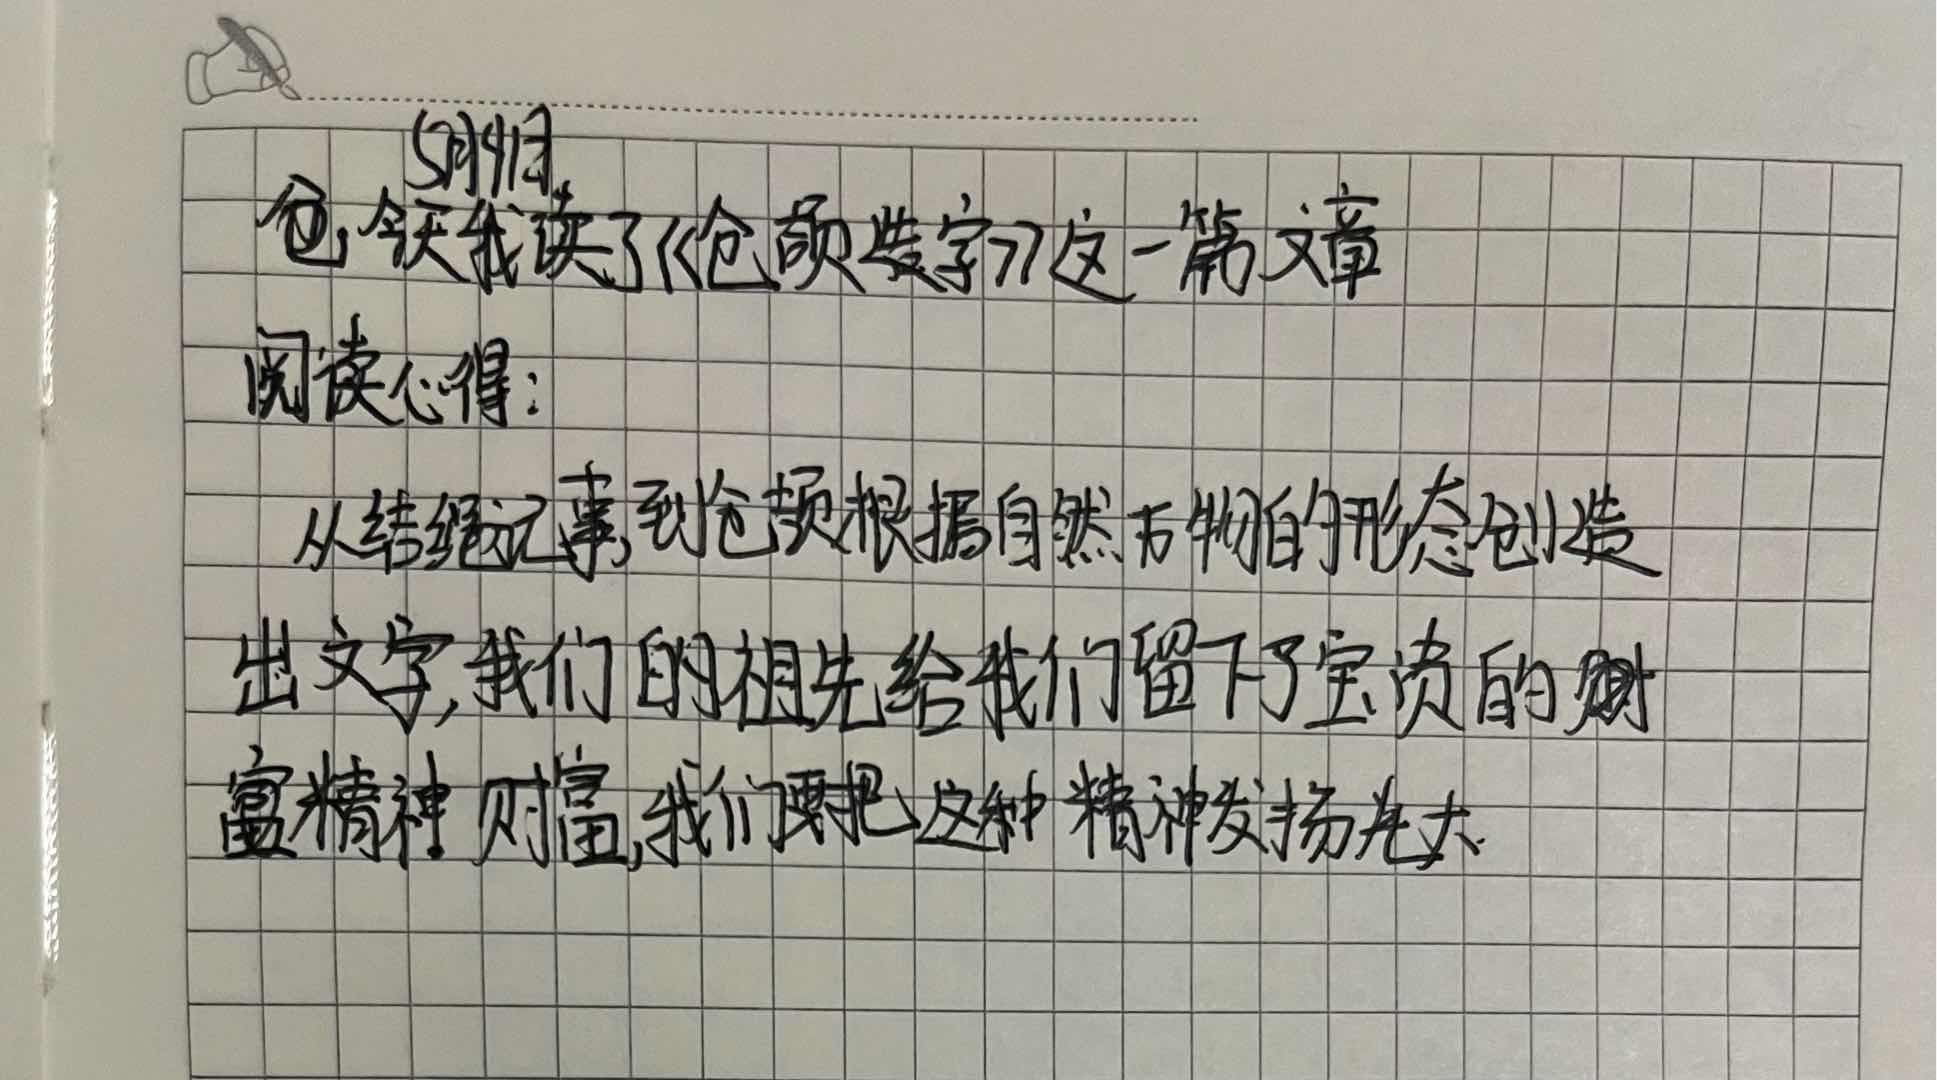 5月4日
今天我读了《仓颉造字》这一篇文章
阅读心得：
从结绳记事，到仓颉根据自然万物的形态创造
出文字，我们的祖先给我们留下了宝贵的
精神财富，我们要把这种精神发扬光大.